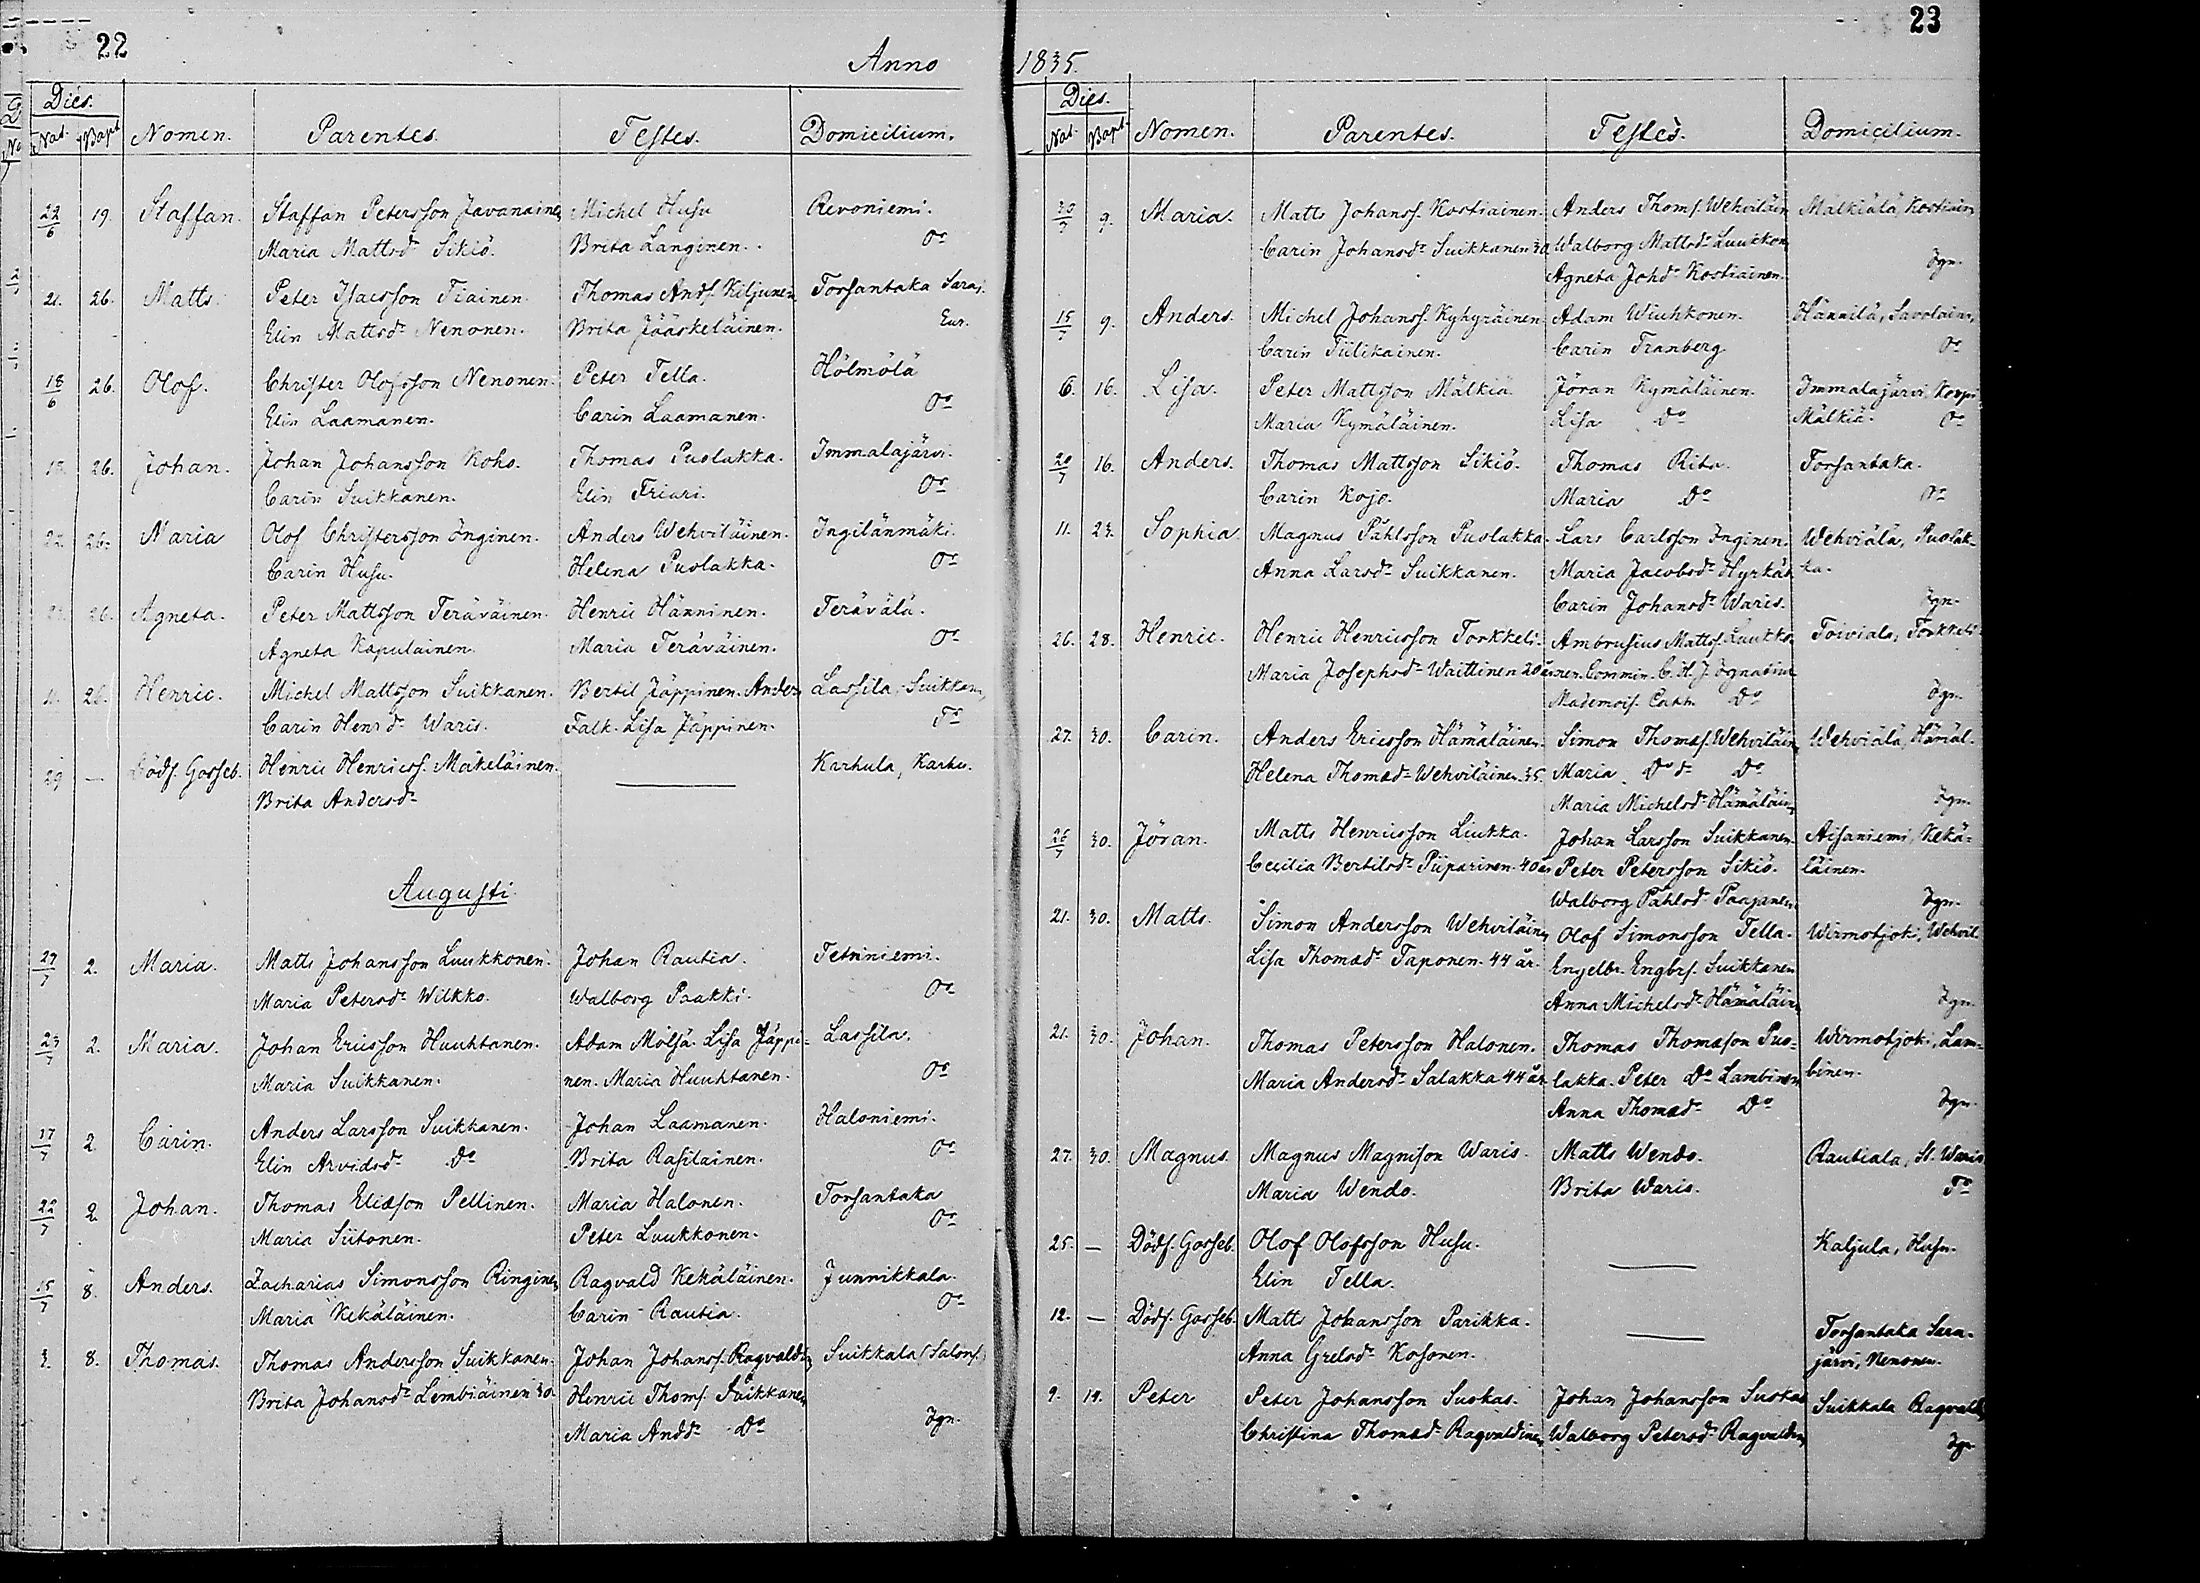 22
Anno
Dies.
Nat. Bapt. Nomen. Parentes. Testes. Domicilium.
22/6 19. Staffan. Staffan Petersson Javanainen Michel Husu Revoniemi.
Maria Mattsd. Sikiö. Brita Langinen. Do
21. 26. Matts. Peter Isacsson Tiainen. Thomas Ands. Kiljunen Torsantaka Saraj.
Elin Mattsd. Nenonen. Brita Jääskeläinen. Eur.
18/6 26. Olof. Christer Olofsson Nenonen. Peter Tella. Hölmölä
Elin Laamanen. Carin Laamanen. Do
26. Johan. Johan Johansson Koho. Thomas Puolakka. Immalajärvi.
Carin Suikkanen. Elin Friari. Do
22. 26. Maria Olof Christersson Inginen. Anders Wehviläinen. Ingilänmäki.
Carin Husu. Helena Puolakka. Do
26. Agneta. Peter Mattsson Teräväinen. Henric Hänninen. Terävälä.
Agneta Kapulainen. Maria Teräväinen. Do
26. Henric. Michel Mattsson Suikkanen. Bertil Jäppinen. Anders Lassila, Suikkan,
Carin Henrd. Waris. Falk. Lisa Jäppinen.
29 — Dödf. Gosseb. Henric Henricss. Mäkeläinen. — Karhula, Karhu.
Brita Andersd.
Augusti
29/7 2. Maria. Matts Johansson Luukkonen. Johan Rautia. Tetriniemi.
Maria Petersd. Wilkko. Walborg Paakki. Do
23/7 2. Maria. Johan Ericsson Huuhtanen. Adam Mölsä. Lisa Jäppi- Lassila.
Maria Suikkanen. nen. Maria Huuhtanen. Do
17/7 2 Carin. Anders Larsson Suikkanen. Johan Laamanen. Haloniemi.
Elin Arvidsd. Do Brita Rasilainen. Do
22/7 2 Johan. Thomas Eliasson Pellinen. Maria Halonen. Torsantaka
Maria Siitonen. Peter Luukkonen. Do
15/7 8. Anders. Zacharias Simonsson Ringinen Ragvald Kekäläinen. Junnikkala.
Maria Kekäläinen. Carin Rautia. Do
3. 8. Thomas. Thomas Andersson Suikkanen. Johan Johanss. Ragvaldin Suikkala (Salons.)
Brita Johansd. Lembiäinen 30 Henric Thoms. Suikkanen
Maria Andd. Do Ign.
23
1835.
Dies.
Nat. Bapt. Nomen. Parentes. Testes. Domicilium.
9. Maria. Matts Johanss. Kostiainen. Anders Thoms. Wehviläin Mälkiälä, Kostiain
Carin Johansd. Suikkanen 30 Walborg Mattsd. Luukkon
Agneta Johd. Kostiainen. Ign.
15/7 9. Anders. Michel Johanss. Kyhyräinen. Adam Wiuhkonen. Hännilä, Savolain.
Carin Tiilikainen. Carin Franberg Do
6. 16. Lisa. Peter Mattsson Mälkiä. Jöran Kymäläinen. Immalajärvi, Korpi
Maria Kymäläinen. Lisa Do Mälkiä. Do
20/7 16. Anders. Thomas Mattsson Sikiö. Thomas Rita. Torsantaka.
Carin Kojo. Maria Do Do
11. 23. Sophia Magnus Påhlsson Puolakka. Lars Carlsson Inginen. Wehviälä, Puolak-
Anna Larsd. Suikkanen. Maria Jacobsd. Hyrkäs ka.
Carin Johansd. Waris. Ign.
26. 28. Henric. Henric Henricsson Torkkeli. Ambrusius Mattss. Luukko- Toiviala, Torkkeli
Maria Josephsd. Waittinen 20 år nen. Commin. C. H. J. Ignatius
Mademois. Cath. Do Ign.
27. 30. Carin. Anders Ericsson Hämäläinen. Simon Thomass. Wehviläin Wehviälä, Hämäl.
Helena Thomæd. Wehviläinen. 35. Maria Do d. Do
Maria Michelsd. Hämäläin Ign.
26/7 30. Jöran. Matts Henricsson Liukka. Johan Larsson Suikkanen. Aisaniemi, Kekä-
Cecilia Bertilsd. Piiparinen. 40 år Peter Petersson Sikiö. läinen.
Walborg Påhlsd. Paajanen. Ign.
21. 30. Matts. Simon Andersson Wehviläin Olof Simonsson Tella. Wirmotjoki, Wehvil.
Lisa Thomæd. Taponen. 44 år. Engelbr. Engbrs. Suikkanen
Anna Michelsd. Hämäläin Ign.
21. 30. Johan. Thomas Petersson Halonen. Thomas Thomæson Puo- Wirmotjoki, Lam-
Maria Andersd. Salakka 44 år lakka. Peter Do Lambinen binen.
Anna Thomæd. Do Ign.
27. 30. Magnus. Magnus Magnisson Waris. Matts Wendo. Rautiala, St. Waris
Maria Wendo. Brita Waris.
25. — Dödf. Gosseb. Olof Olofsson Husu. — Kaljula, Husu.
Elin Tella.
12. — Dödf. Gosseb. Matts Johansson Parikka. — Torsantaka Sara-
Anna Grelsd. Kosonen. järvi, Nenonen.
9. 19. Peter Peter Johansson Suokas. Johan Johansson Suokas Suikkala Ragvald
Christina Thomæd. Ragvaldinen Walborg Petersd. Ragvaldin Ign